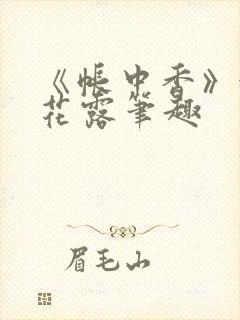 《帐中香》
花露笔趣
眉毛山